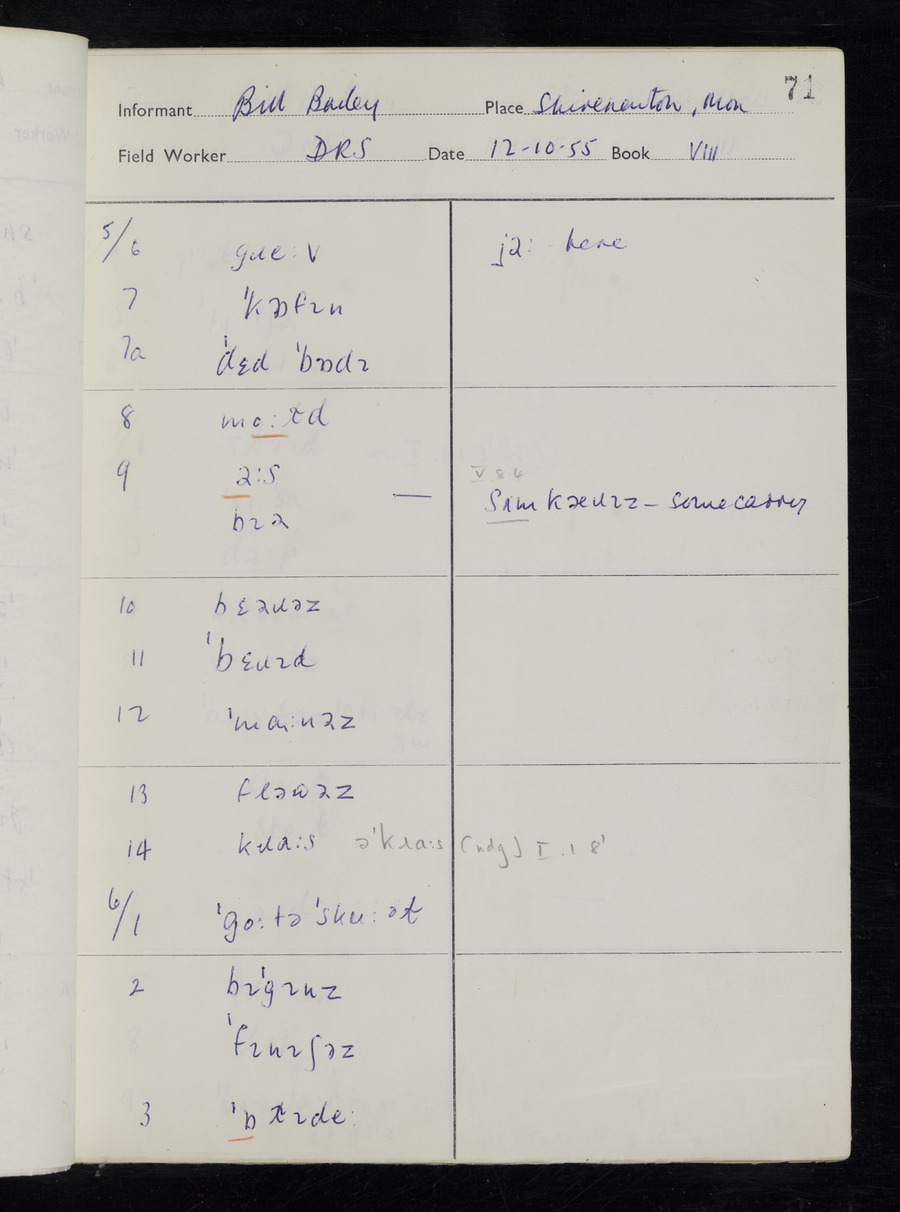 71
Informant Bill Bailey Place Shirenewton, Mon
Field Worker DRS Date 12-10-55 Book VIII
5/6 gɹe:v jə: - here
7 ˈkɔfɪn
7a ˈdɛd ˈbɒdɪ
8 mo:td
9 ə:s — V.8.4
bɪə sʌmkæɹɪz - some carry
10 bɛəɹəz
11 ˈbɛɹɪd
12 ˈma:nəz
13 flaɷəz
14 kɹɑ:s əˈkɹɑ:s (ndg) I.1 8'
6/1 ˈgo:tə ˈsku:əɫ
2 bɪˈgɪnz
ˈfɪnɪʃəz
3 ˈɒɫɪde: